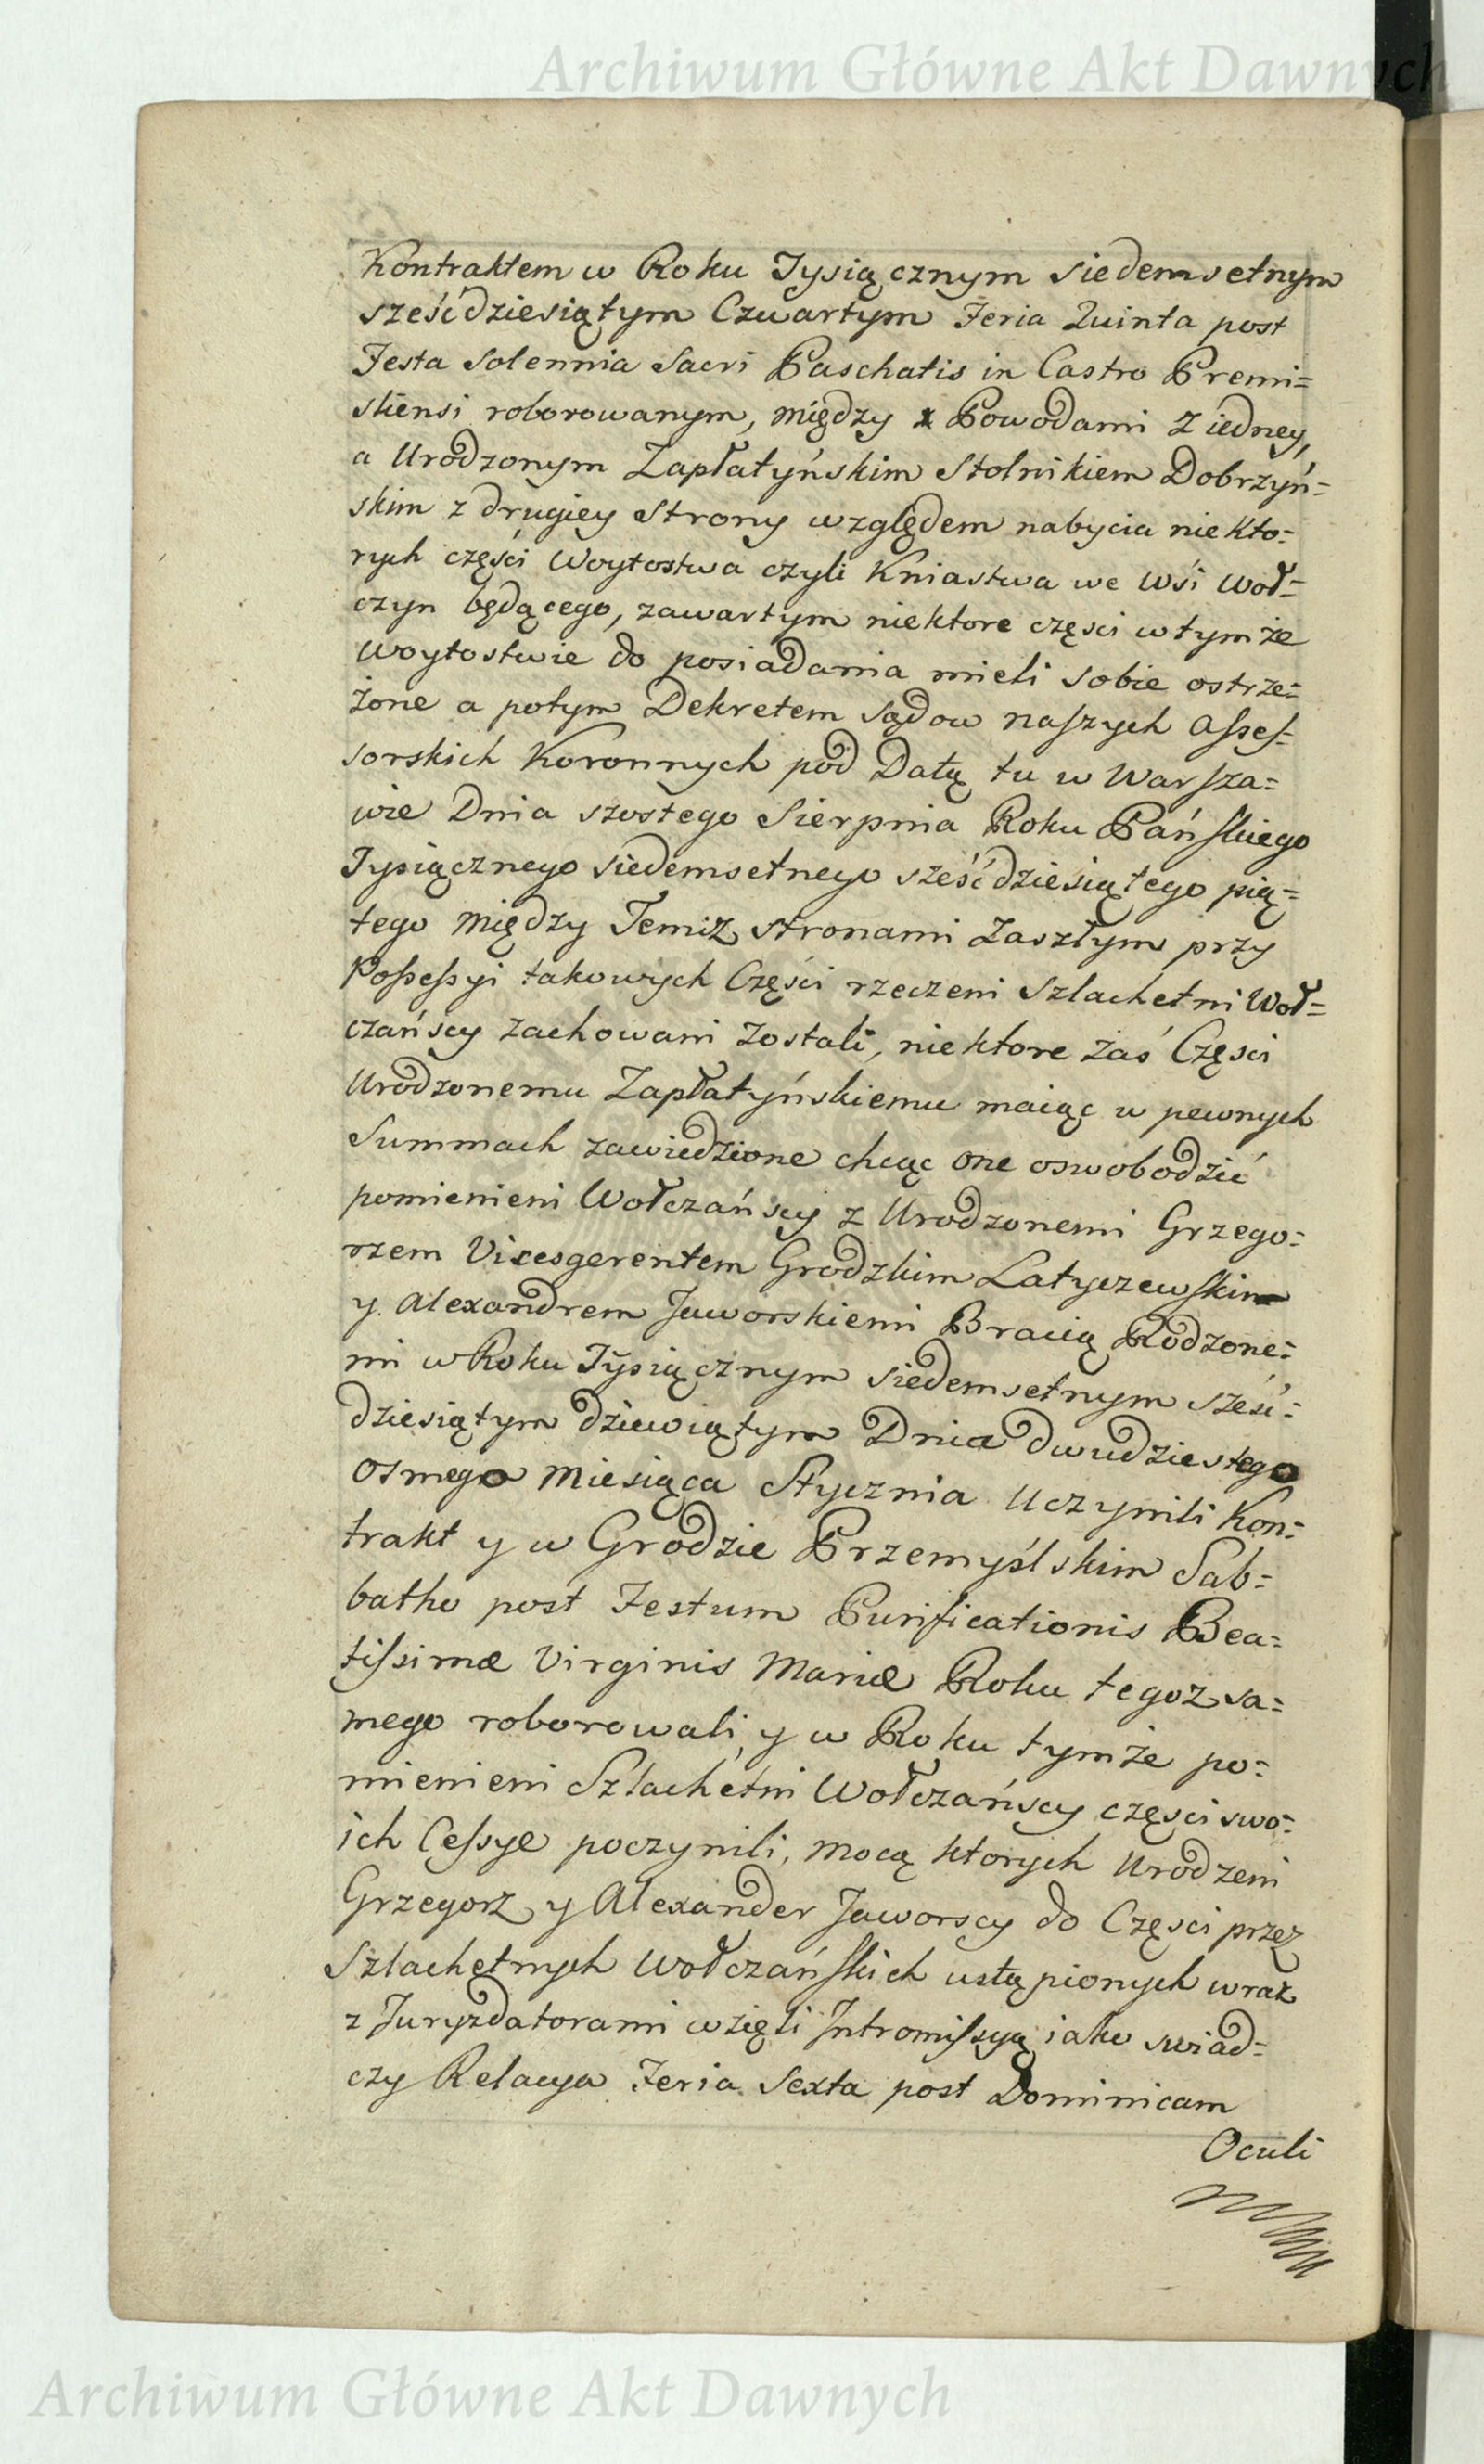 Archiwum Główne Akt Dawnych
Kontraktem w Roku Tysiącznym siedemsetnym
sześćdziesiątym Czwartym Feria Quinta post
Festa Solennia Sacri Paschatis in Castro Premi=
sliensi roborowanym, między Powodami z iedney,
a Urodzonym Zapłatyńskim Stolnikiem Dobrzyń=
skim z drugiey Strony względem nabycia niekto=
rych części Woytostwa czyli Kniastwa we Wśi Woł=
czyn będącego, zawartym niektore części w tymże
Woytostwie do posiadania mieli sobie ostrze=
żone a potym Dekretem sądow naszych Asses=
sorskich Koronnych pod Datą tu w Warsza=
wie Dnia szostego Sierpnia Roku Pańskiego
Tysiącznego siedemsetnego sześćdziesiątego pią=
tego między Temiż stronami zaszłym przy
Possessyi takowych Części rzeczeni Szlachetni Woł=
czańscy zachowani zostali, niektore zaś Części
Urodzonemu Zapłatyńskiemu maiąc w pewnych
Summach zawiedzione chcąc one oswobodzić
pomienieni Wołczańscy z Urodzonemi Grzego=
rzem Vicesgerentem Grodzkim Latyczewskim
y Alexandrem Jaworskiemi Bracią Rodzone=
mi w Roku Tysiącznym siedemsetnym sześć=
dziesiątym dziewiątym Dnia dwudziestego
osmego Miesiąca Stycznia uczynili Kon=
trakt y w Grodzie Przemyślskim Sab=
batho post Festum Purificationis Bea=
tissimæ Virginis Mariæ Roku tegoż sa=
mego roborowali, y w Roku tymże po=
mienieni Szlachetni Wołczańscy części swo=
ich Cessye poczynili, mocą ktorych Urodzeni
Grzegorz y Alexander Jaworscy do Części przez
Szlachetnych Wołczańskich ustąpionych wraz
z Juryzdatorami wzięli Intromissyą iako swiad=
czy Relacya Feria Sexta post Dominicam
Oculi
Archiwum Główne Akt Dawnych